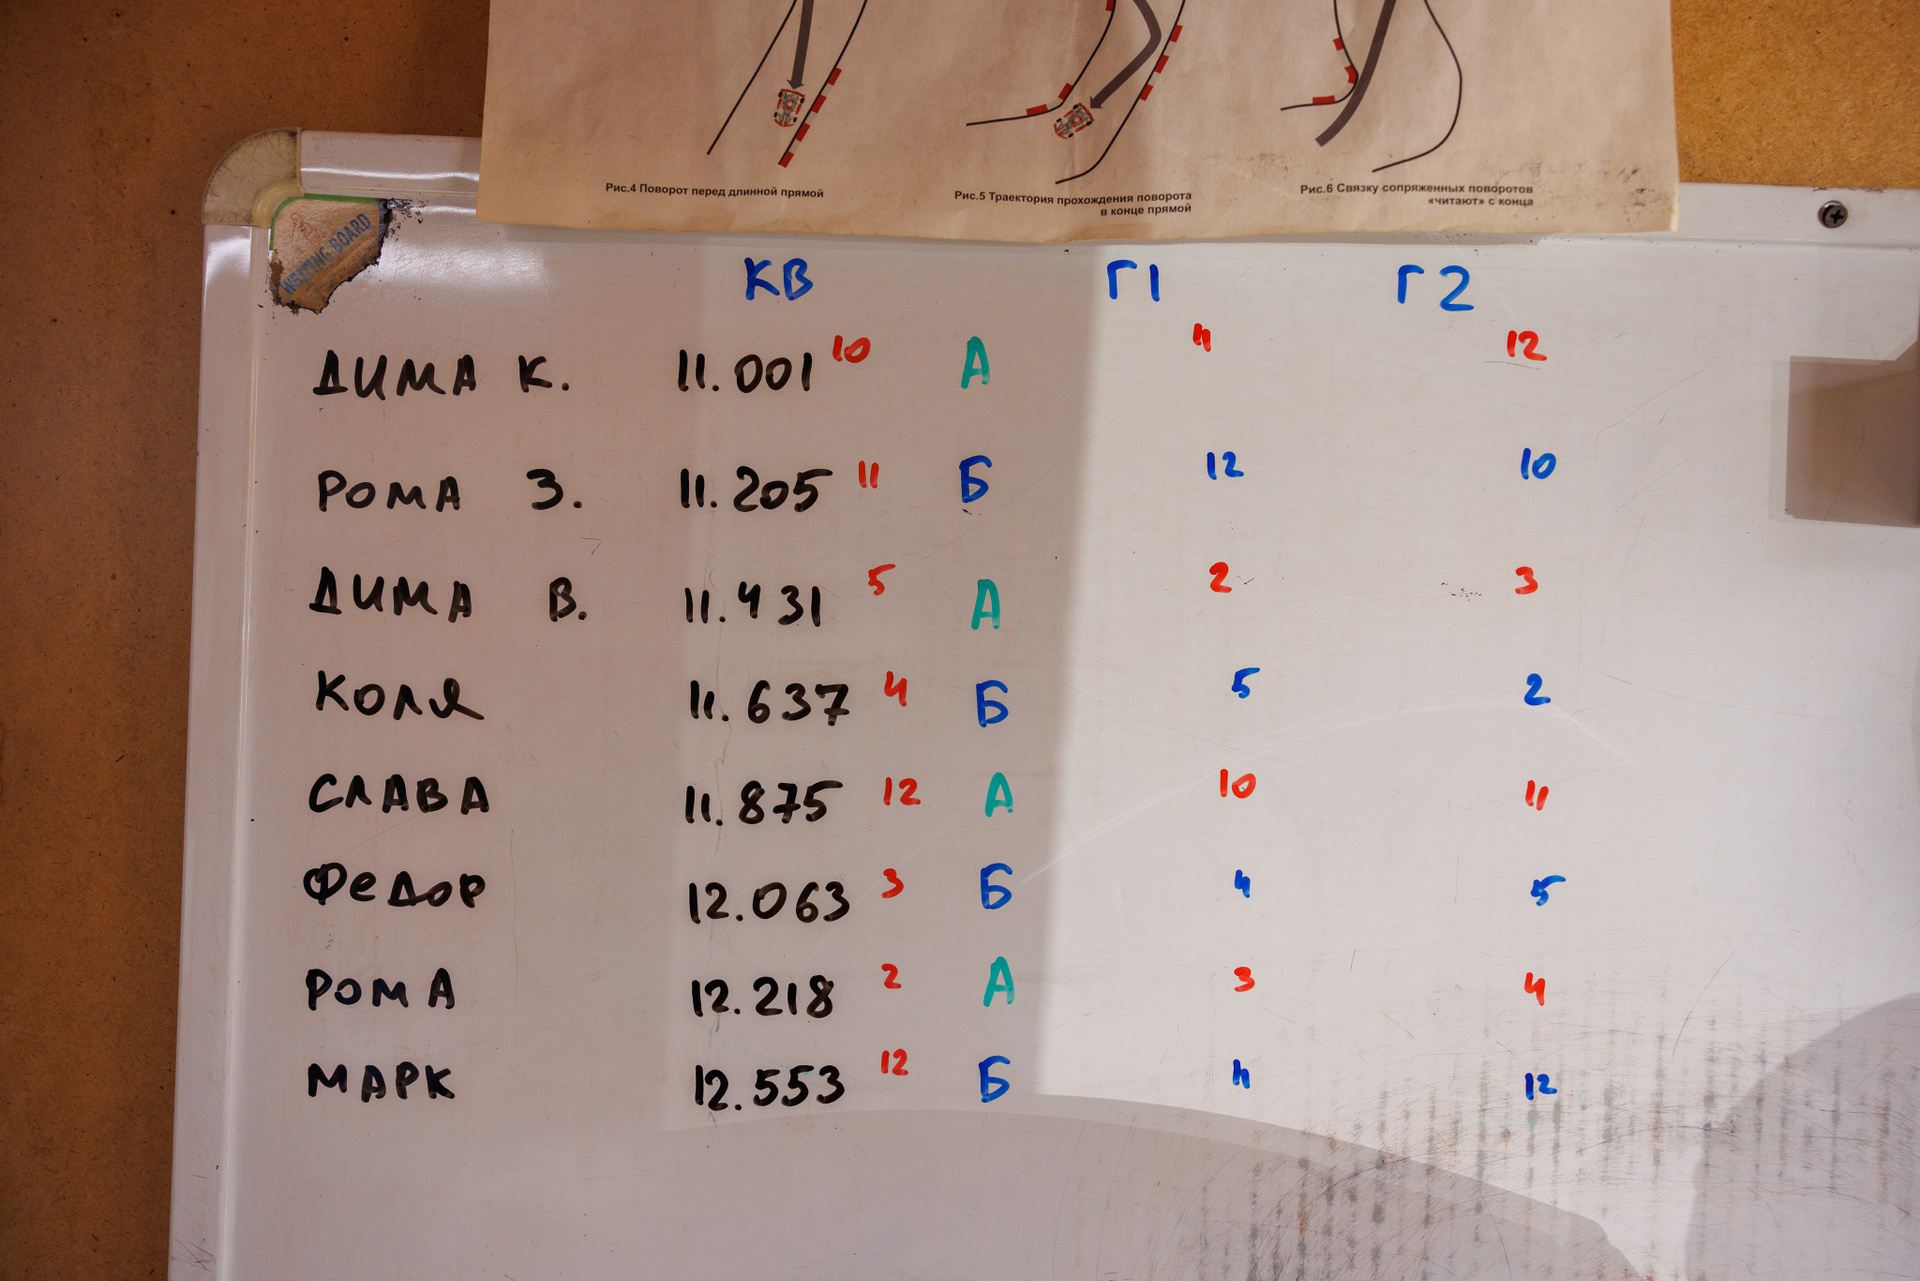 Рис.4 Поворот перед длинной прямой
Рис.5 Траектория прохождения поворота
в конце прямой
Рис.6 Связку сопряженных поворотов
«читают» с конца
WRITING BOARD
КВ Г1 Г2
ДИМА К. 11.001 10 А 4 12
РОМА З. 11.205 11 Б 12 10
ДИМА В. 11.431 5 А 2 3
КОЛЯ 11.637 4 Б 5 2
СЛАВА 11.875 12 А 10 11
ФЕДОР 12.063 3 Б 4 5
РОМА 12.218 2 А 3 4
МАРК 12.553 12 Б 12